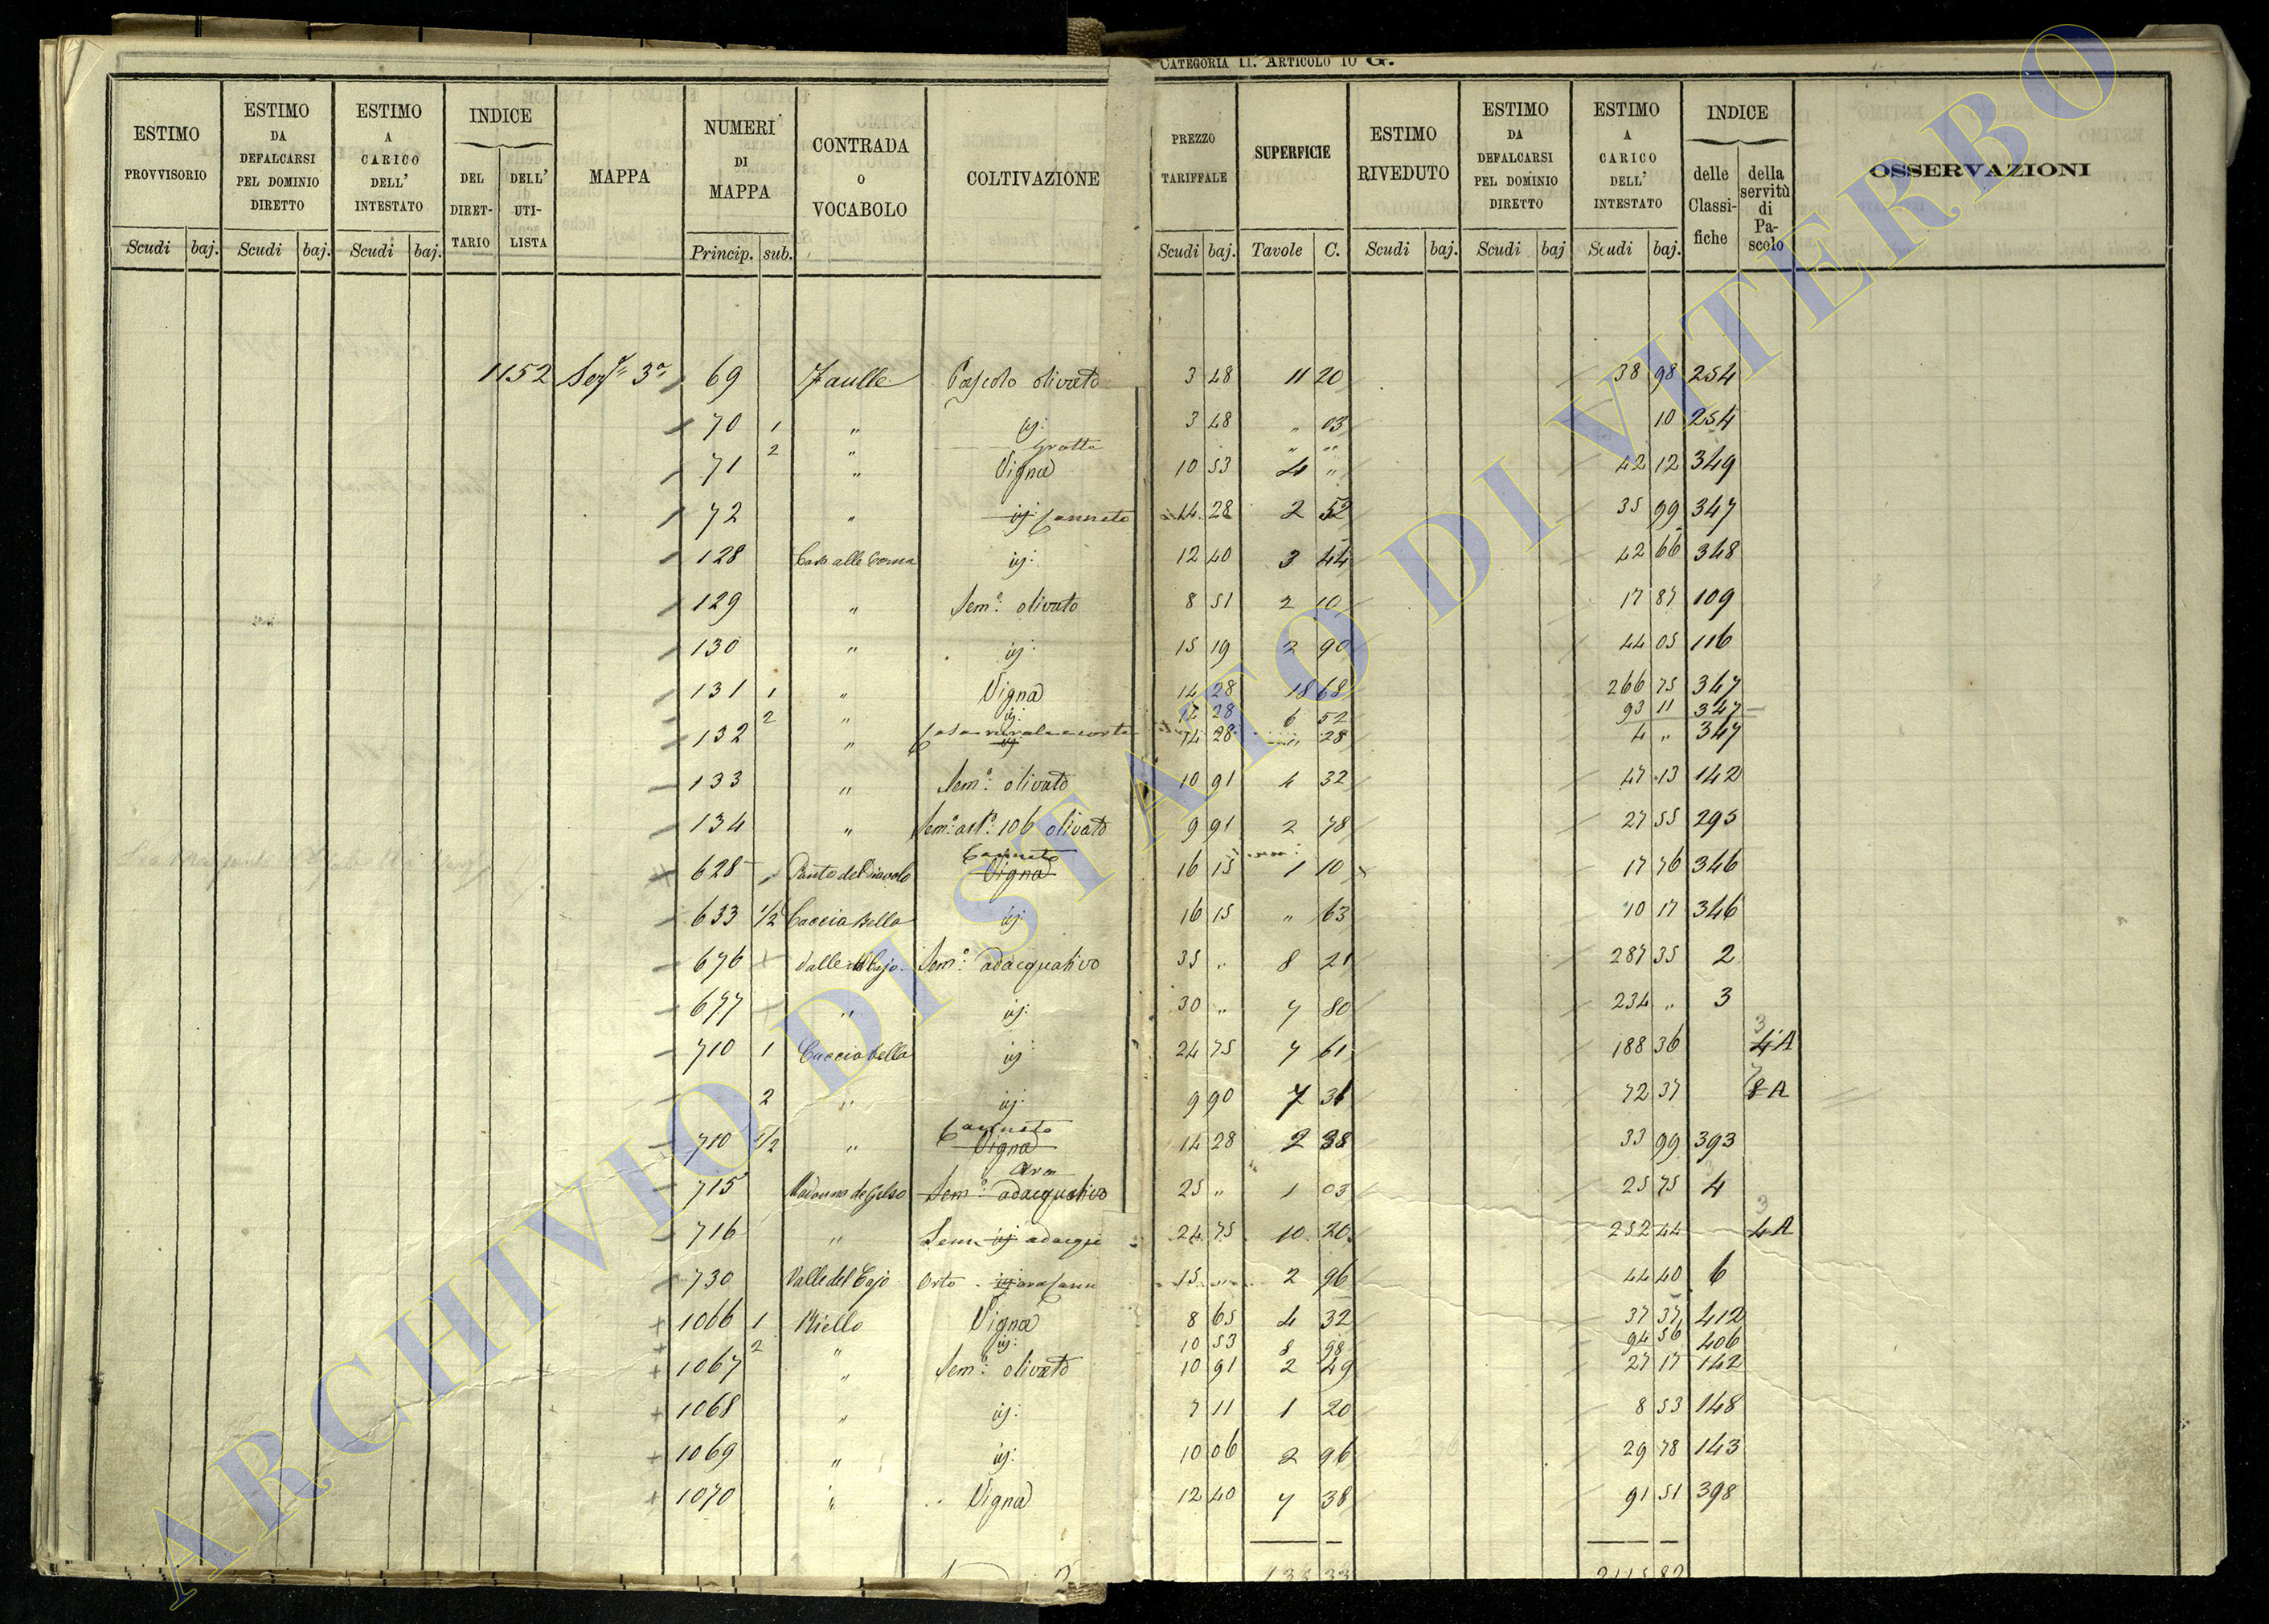 CATEGORIA II. ARTICOLO 10 G.
ESTIMO PROVVISORIO Scudi baj.
ESTIMO DA DEFALCARSI PEL DOMINIO DIRETTO Scudi baj.
ESTIMO A CARICO DELL' INTESTATO Scudi baj.
INDICE DEL DIRETTARIO DELL' UTILISTA
MAPPA
NUMERI DI MAPPA Princip. sub.
CONTRADA O VOCABOLO
COLTIVAZIONE
PREZZO TARIFFALE Scudi baj.
SUPERFICIE Tavole C.
ESTIMO RIVEDUTO Scudi baj.
ESTIMO DA DEFALCARSI PEL DOMINIO DIRETTO Scudi baj
ESTIMO A CARICO DELL' INTESTATO Scudi baj.
INDICE delle Classifiche della servitù di Pascolo
OSSERVAZIONI
1152 Sezne 3a 69 Faulle Pascolo olivato 3 48 11 20 38 98 254
70 1 " id: 3 48 " 03 10 254
2 " Grotta " "
71 " Vigna 10 53 4 " 42 12 349
72 " id Canneto 14 28 2 52 35 99 347
128 id: 12 40 3 44 42 66 348
129 " Sem.o olivato 8 51 2 10 17 87 109
130 " id: 15 19 2 90 44 05 116
131 1 " Vigna 14 28 18 68 266 75 347
2 " id: 14 28 6 52 93 11 347
132 " Casa rurale e corte id 14 28 " 28 4 " 347
133 " Sem.o olivato 10 91 4 32 47 13 142
134 " Sem.o art.o 106 olivato 9 91 2 78 27 55 295
Canneto
628 Ponte del Diavolo Vigna 16 15 1 10 17 76 346
633 1/2 Caccia Bella id: 16 15 " 63 10 17 346
676 Valle del Cajo Sem.o adacquativo 35 " 8 21 287 35 2
677 " id: 30 " 7 80 234 " 3
3
710 1 Caccia bella id: 24 75 7 61 188 36 4 A
7
2 " id: 9 90 7 31 72 37 8 A
Canneto
710 1/2 " Vigna 14 28 2 38 33 99 393
Ara
715 Madonna de Gelso Sem.o adacquativo 25 " 1 03 25 75 4
3
716 " Sem. id adacque 24 75 10 20 252 44 4 A
730 Valle del Cajo Orto id 15 2 96 44 40 6
1066 1 Riello Vigna 8 65 4 32 37 37 412
2 " id: 10 53 8 98 94 56 406
1067 " Sem.o olivato 10 91 2 49 27 17 142
1068 " id: 7 11 1 20 8 53 148
1069 " id: 10 06 2 96 29 78 143
1070 " Vigna 12 40 7 38 91 51 398
133 33 2115 82
ARCHIVIO DI STATO DI VITERBO